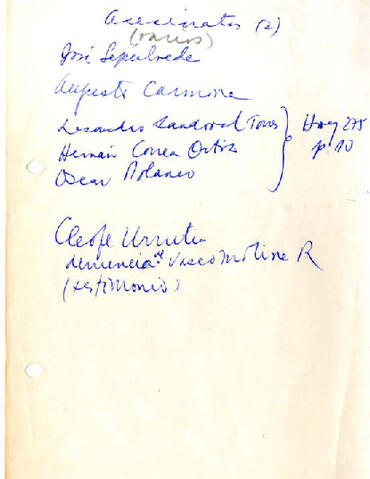 Asesinatos (2)
(varios)
José Sepúlveda
Augusto Carmona
Lisandro Sandoval Torres
Hernán Correa Ortiz
Oscar Polanco
Hoy 275
p. 10
Cleofe Urrutia
denuncia Vasco Molina R
(testimonio)